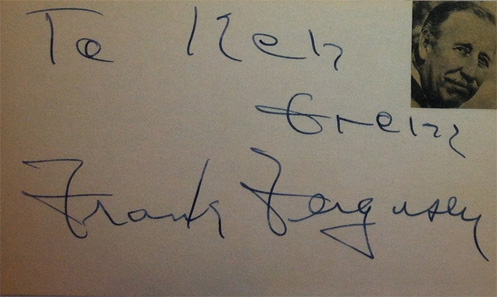 To Ken
Grenz
Frank Ferguson